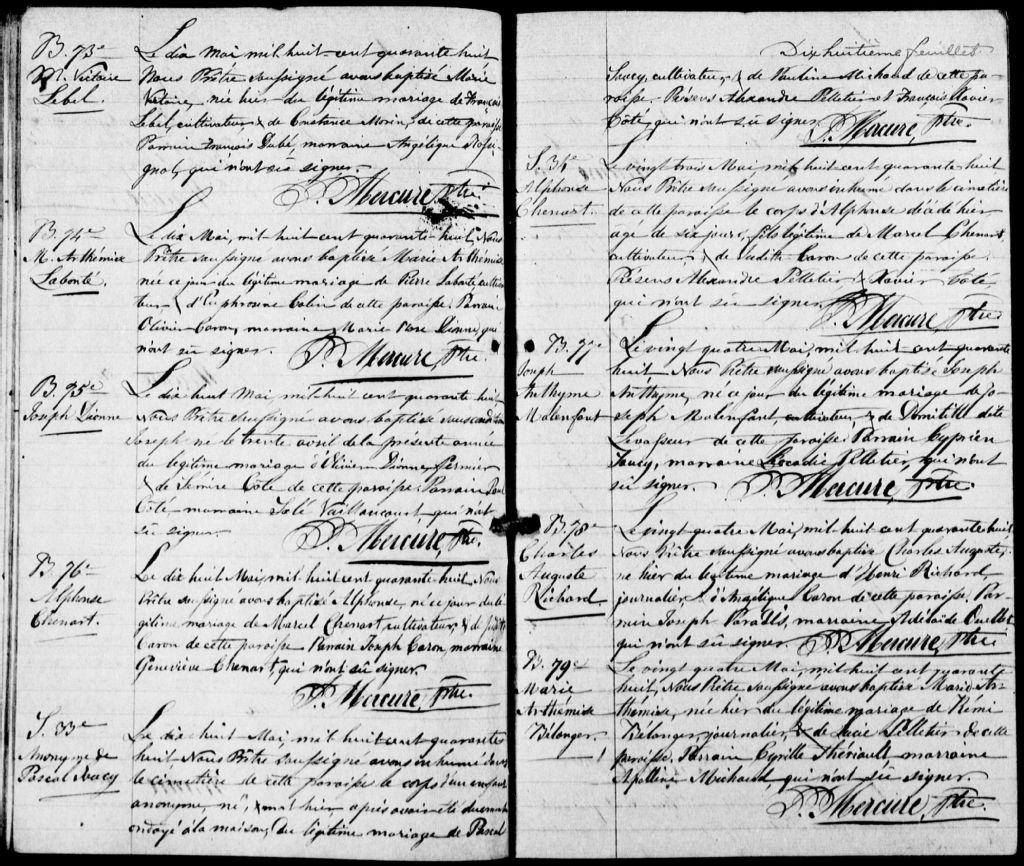 B. 73e
M. Victoire
Lebel.
Le dix mai mil huit cent quarante huit
Nous Prêtre soussigné avons baptisé Marie
Victoire, née hier du légitime mariage de François
Lebel, cultivateur, & de Constance Morin, de cette paroisse
Parrain François Dubé, marraine Angélique Rossi-
gnol, qui n'ont sû signer.
P. Mercure, Ptre
B. 74e
M. Arthémise
Labonté.
Le dix Mai, mil huit cent quarante huit, Nous
Prêtre soussigné avons baptisé Marie Arthémise
née ce jour du légitime mariage de Pierre Labonté, cultiva-
teur, & d'Euphrosine Colin de cette paroisse. Parrain
Olivier Caron, marraine Marie Rose Dionne, qui
n'ont sû signer.
P. Mercure, Ptre.
B. 75e
Joseph Dionne
Le dix huit Mai mil huit cent quarante huit
Nous Prêtre soussigné avons baptisé sous condition
Joseph né le trente avril de la présente année
du légitime mariage d'Olivier Dionne, fermier
& de Sémire Côté de cette paroisse. Parrain Paul
Côté marraine Solé Vaillancourt, qui n'ont
sû signer.
P. Mercure, Ptre.
B. 76e
Alphonse
Chenart.
Le dix huit Mai, mil huit cent quarante huit, Nous
Prêtre soussigné avons baptisé Alphonse, né ce jour du lé-
gitime mariage de Marcel Chenart, cultivateur, & de Judith
Caron de cette paroisse Parrain Joseph Caron, marraine
Geneviève Chenart, qui n'ont sû signer.
P. Mercure, Ptre.
S. 33e
Anonyme de
Pascal Saucy
Le dix huit Mai, mil huit cent quarante
huit Nous Prêtre soussigné avons inhumé dans
le cimetière de cette paroisse le corps d'un enfant
anonyme, né, & mort hier, après avoir été dument
ondoyé à la maison, du légitime mariage de Pascal
Dix huitième feuillet
Saucy, cultivateur, & de Pauline Michaud de cette pa-
roisse. Présens Alexandre Pelletier et François Xavier
Côté, qui n'ont sû signer.
P. Mercure, Ptre.
S. 34e
Alphonse
Chenart.
Le vingt trois Mai, mil huit cent quarante huit
Nous Prêtre soussigné avons inhumé dans le cimetière
de cette paroisse le corps d'Alphonse décédé hier
age de six jours, fils légitime de Marcel Chenart,
cultivateur, & de Judith Caron de cette paroisse.
Présens Alexandre Pelletier & Xavier Côté,
qui n'ont sû signer.
P. Mercure, Ptre.
B. 77e
Joseph
Anthyme
Malenfant
Le vingt quatre Mai, mil huit cent quarante
huit Nous Prêtre soussigné avons baptisé Joseph
Anthyme, né ce jour du légitime mariage de Jo-
seph Malenfant, cultivateur, & de Domitille dite
Levasseur de cette paroisse. Parrain Cyprien
Saucy, marraine Léocadie Pelletier, qui n'ont
sû signer.
P. Mercure, Ptre.
B. 78e
Charles
Auguste
Richard.
Le vingt quatre Mai, mil huit cent quarante huit
Nous Prêtre soussigné avons baptisé Charles Auguste,
né hier du légitime mariage d'Henri Richard,
journalier, & d'Angélique Caron de cette paroisse, Par-
rain Joseph Paradis, marraine Adélaïde Ouellet
qui n'ont sû signer.
P. Mercure, Ptre
B. 79e
Marie
Arthémise
Bélanger.
Le vingt quatre Mai, mil huit cent quarante
huit, Nous Prêtre soussigné avons baptisé Marie Ar-
thémise, née hier du légitime mariage de Rémi
Belanger, journalier, & de Lucie Pelletier de cette
paroisse, Parrain Cyrille Thériault marraine
Apolline Michaud, qui n'ont sû signer.
P. Mercure, Ptre.